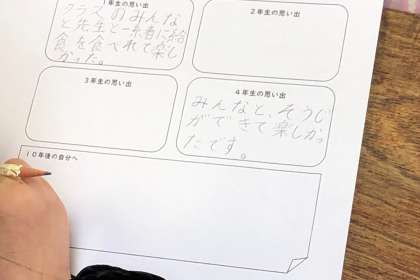 1年生の思い出
クラスのみんな
と先生と一緒に給
食を食べれて楽し
かった。
2年生の思い出
3年生の思い出
4年生の思い出
みんなと、そうじ
ができて楽しかっ
たです。
10年後の自分へ